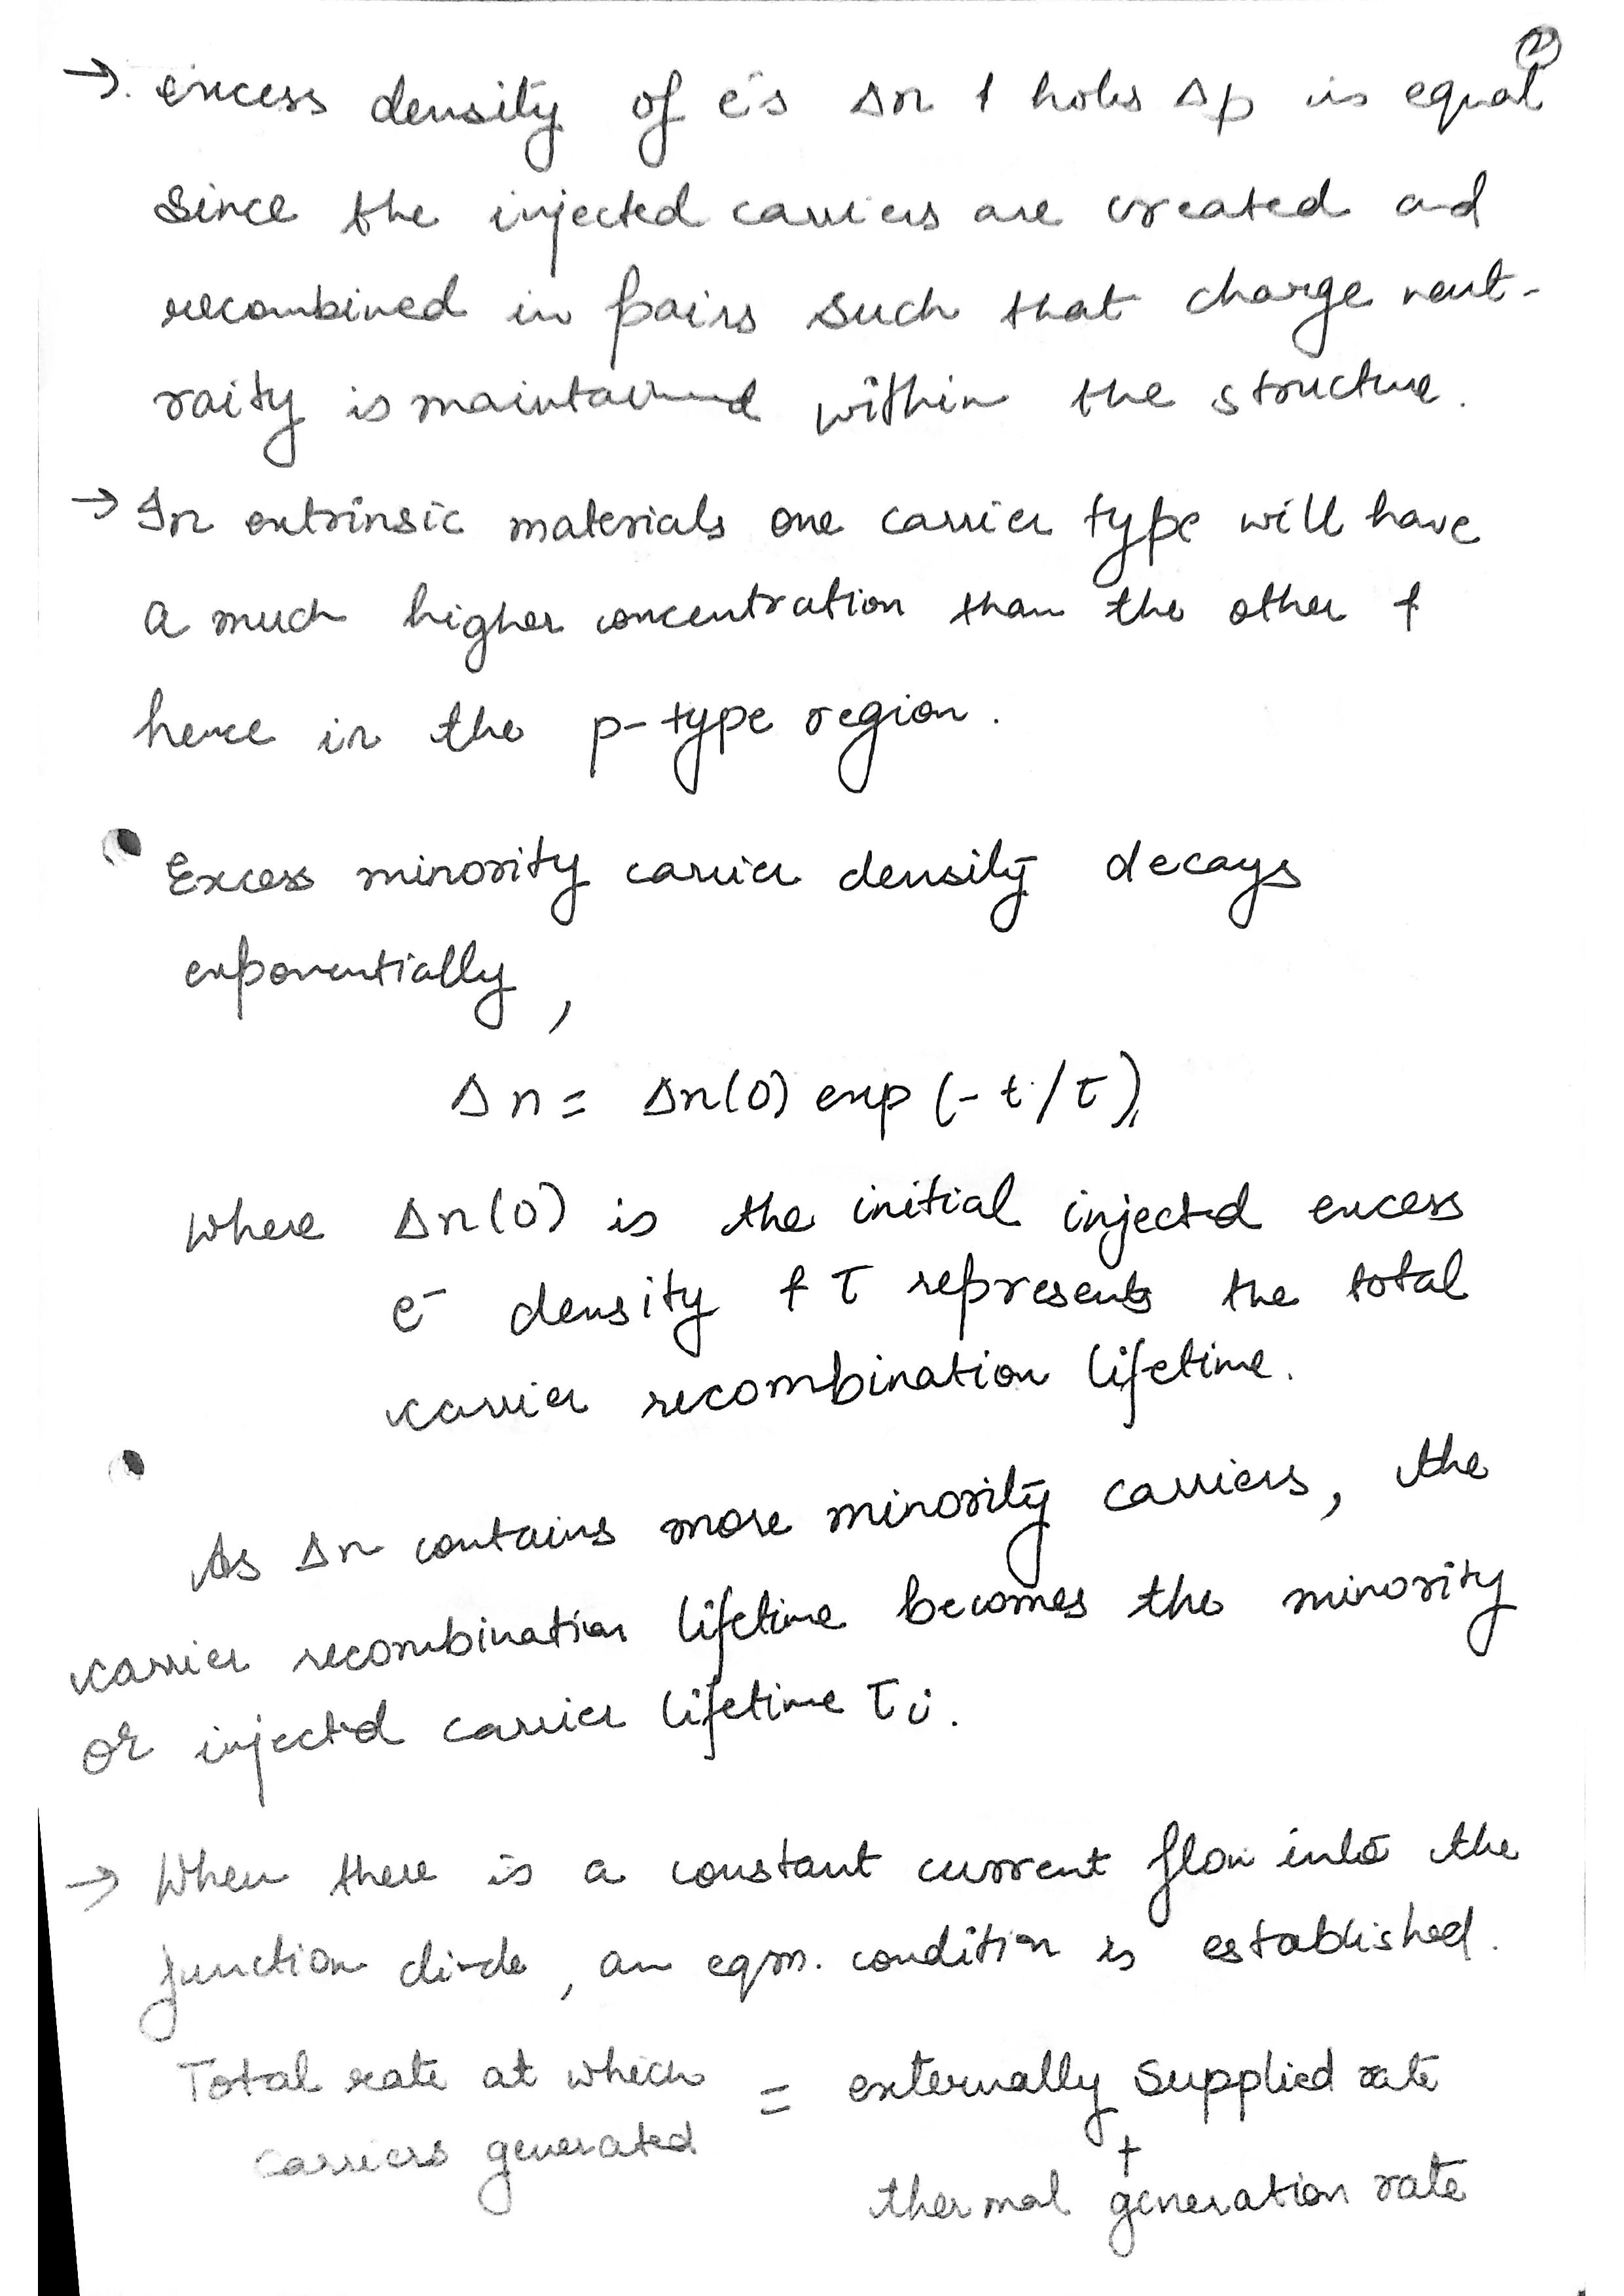 ②
→ excess density of e⁻s Δn & holes Δp is equal
since the injected carriers are created and
recombined in pairs such that charge neut-
raity is maintained within the structure.
→ In extrinsic materials one carrier type will have
a much higher concentration than the other &
hence in the p-type region.
• Excess minority carrier density decays
exponentially,
Δn = Δn(0) exp (-t/τ)
where Δn(0) is the initial injected excess
e⁻ density & τ represents the total
carrier recombination lifetime.
• As Δn contains more minority carriers, the
carrier recombination lifetime becomes the minority
or injected carrier lifetime τi.
→ When there is a constant current flow into the
junction diode, an eqm. condition is established.
Total rate at which = externally supplied rate
carriers generated +
thermal generation rate